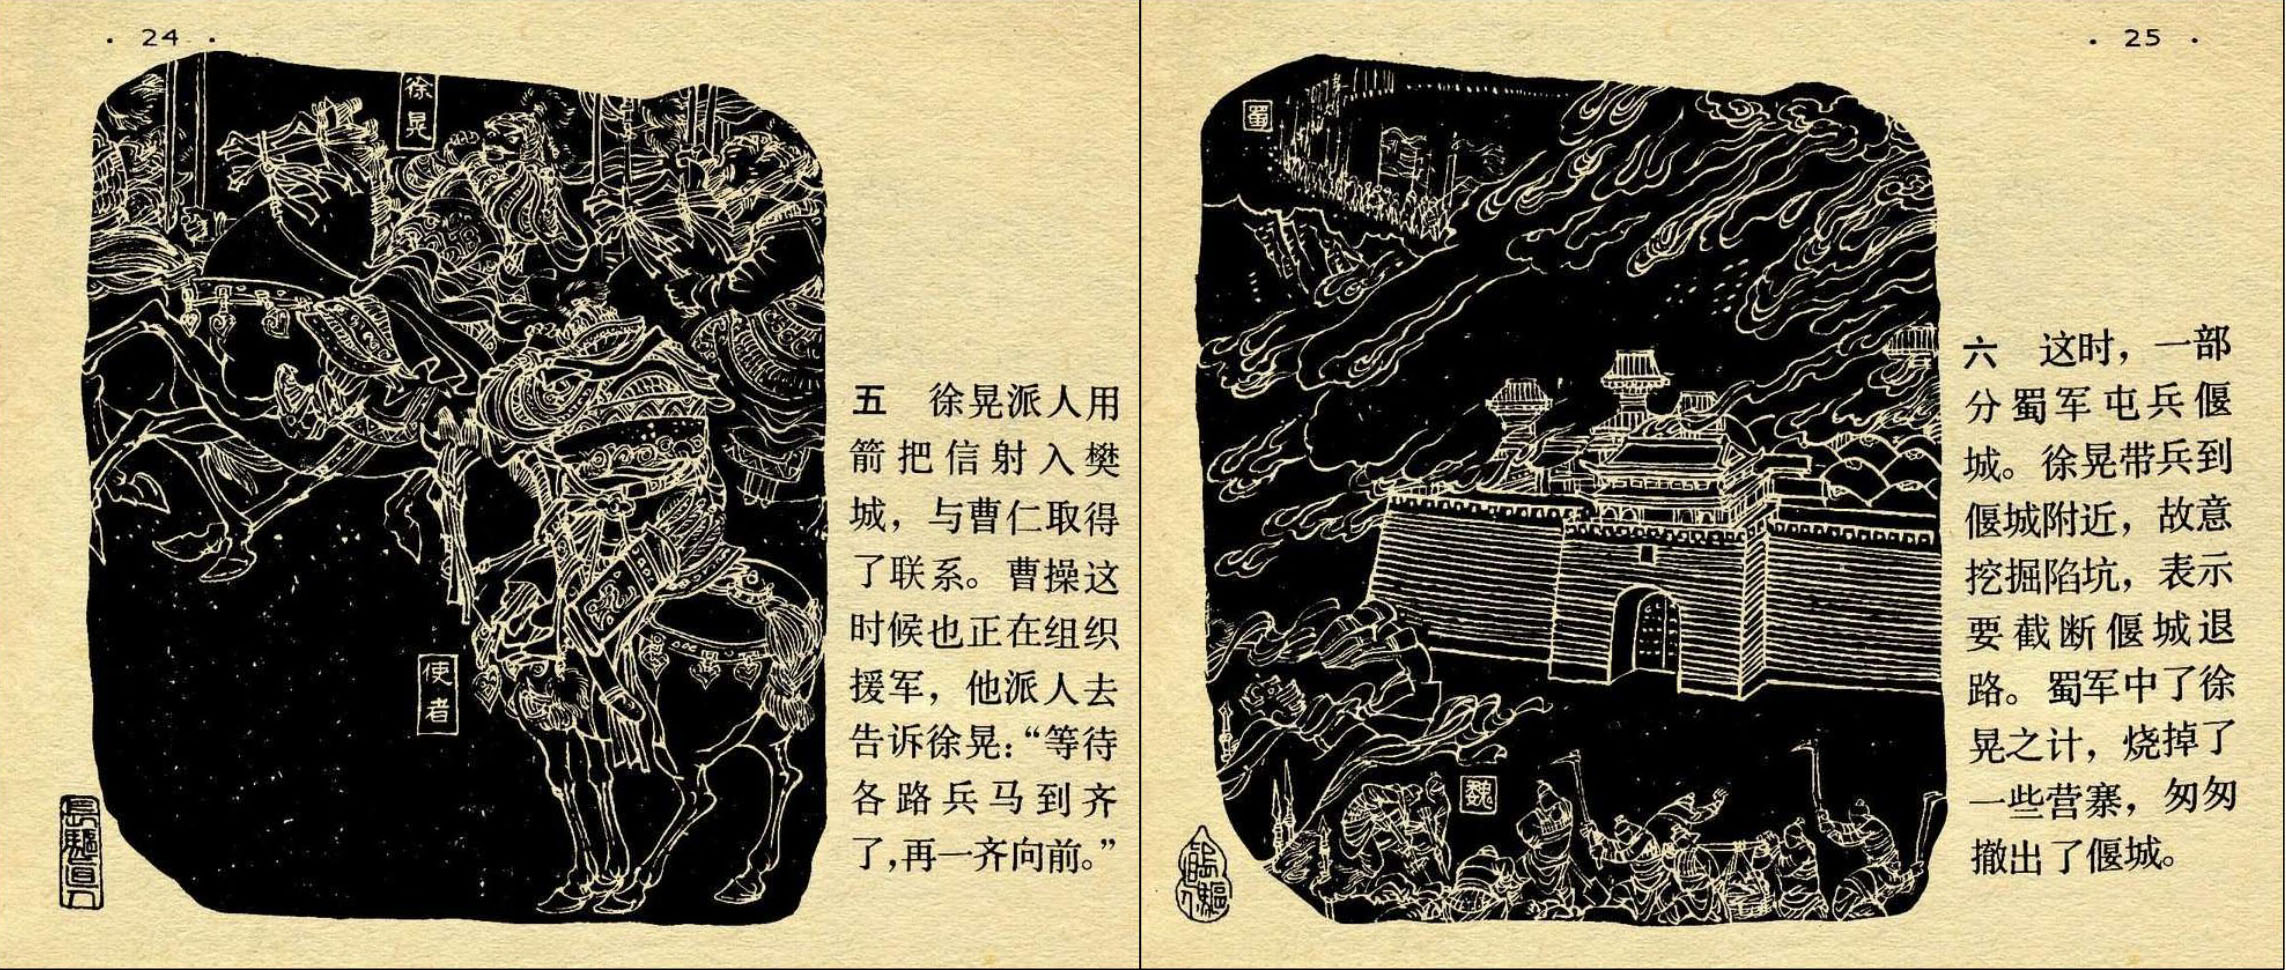 · 24 ·
徐晃
使者
長驅直入
五　徐晃派人用
箭把信射入樊
城，与曹仁取得
了联系。曹操这
时候也正在组织
援军，他派人去
告诉徐晃：“等待
各路兵马到齐
了，再一齐向前。”
· 25 ·
蜀
魏
長驅直入
六　这时，一部
分蜀军屯兵偃
城。徐晃带兵到
偃城附近，故意
挖掘陷坑，表示
要截断偃城退
路。蜀军中了徐
晃之计，烧掉了
一些营寨，匆匆
撤出了偃城。